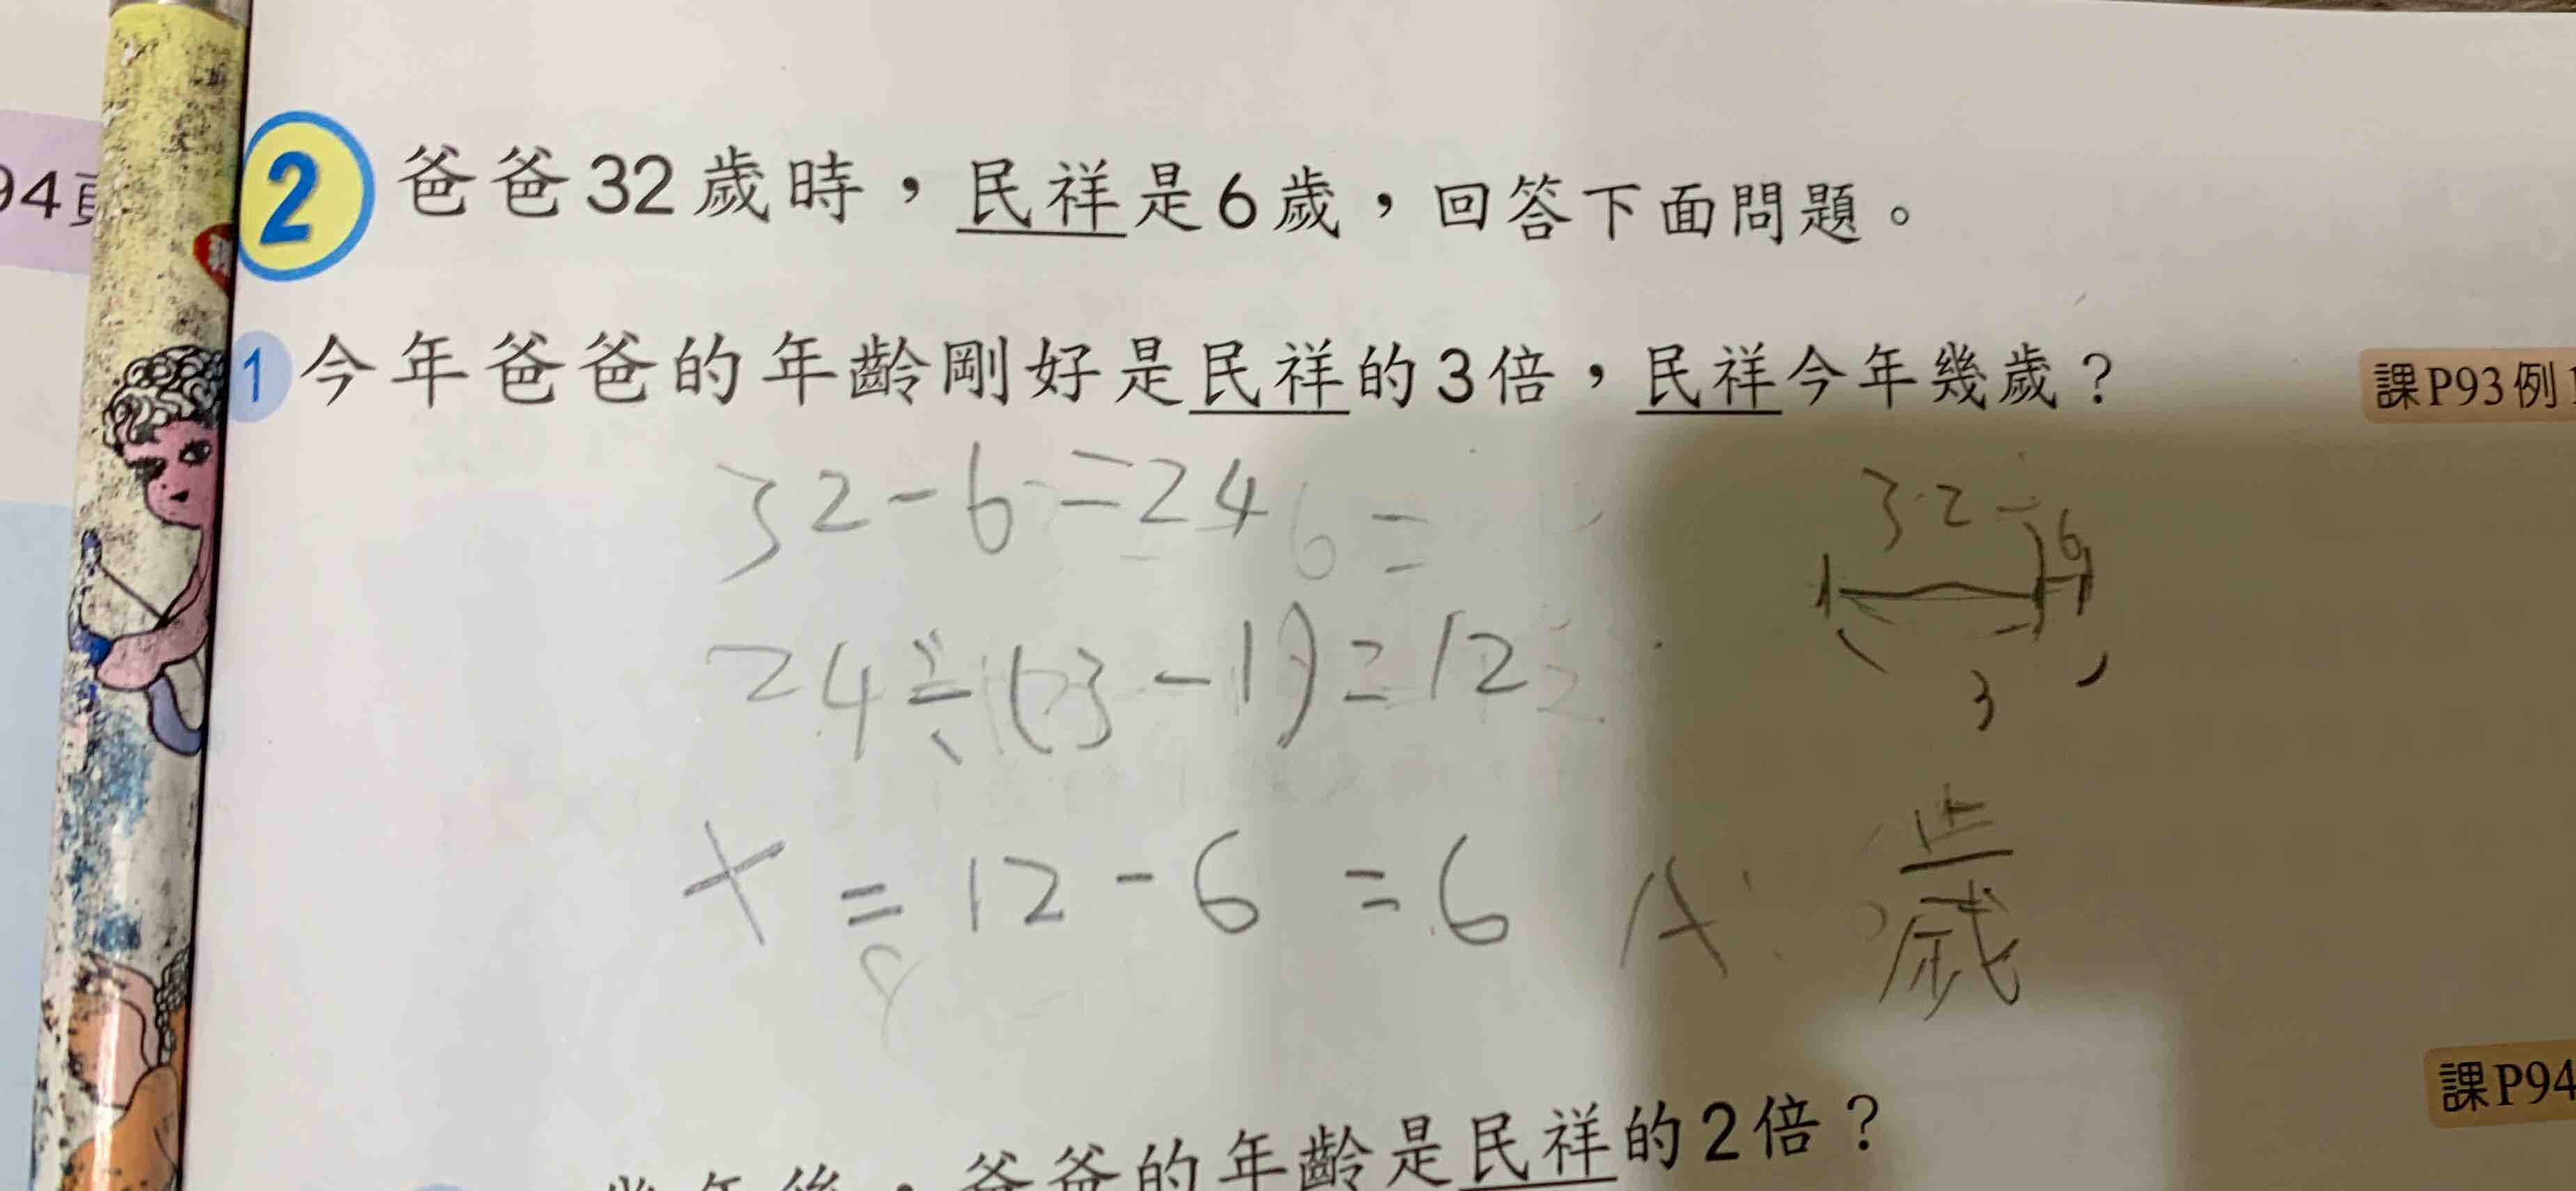 94頁
2 爸爸32歲時，民祥是6歲，回答下面問題。
1 今年爸爸的年齡剛好是民祥的3倍，民祥今年幾歲？
課P93例1
32-6=24 6=
32-6
24÷(3-1)=12
3
x=12-6=6 A: 歲
課P94
幾年後，爸爸的年齡是民祥的2倍？